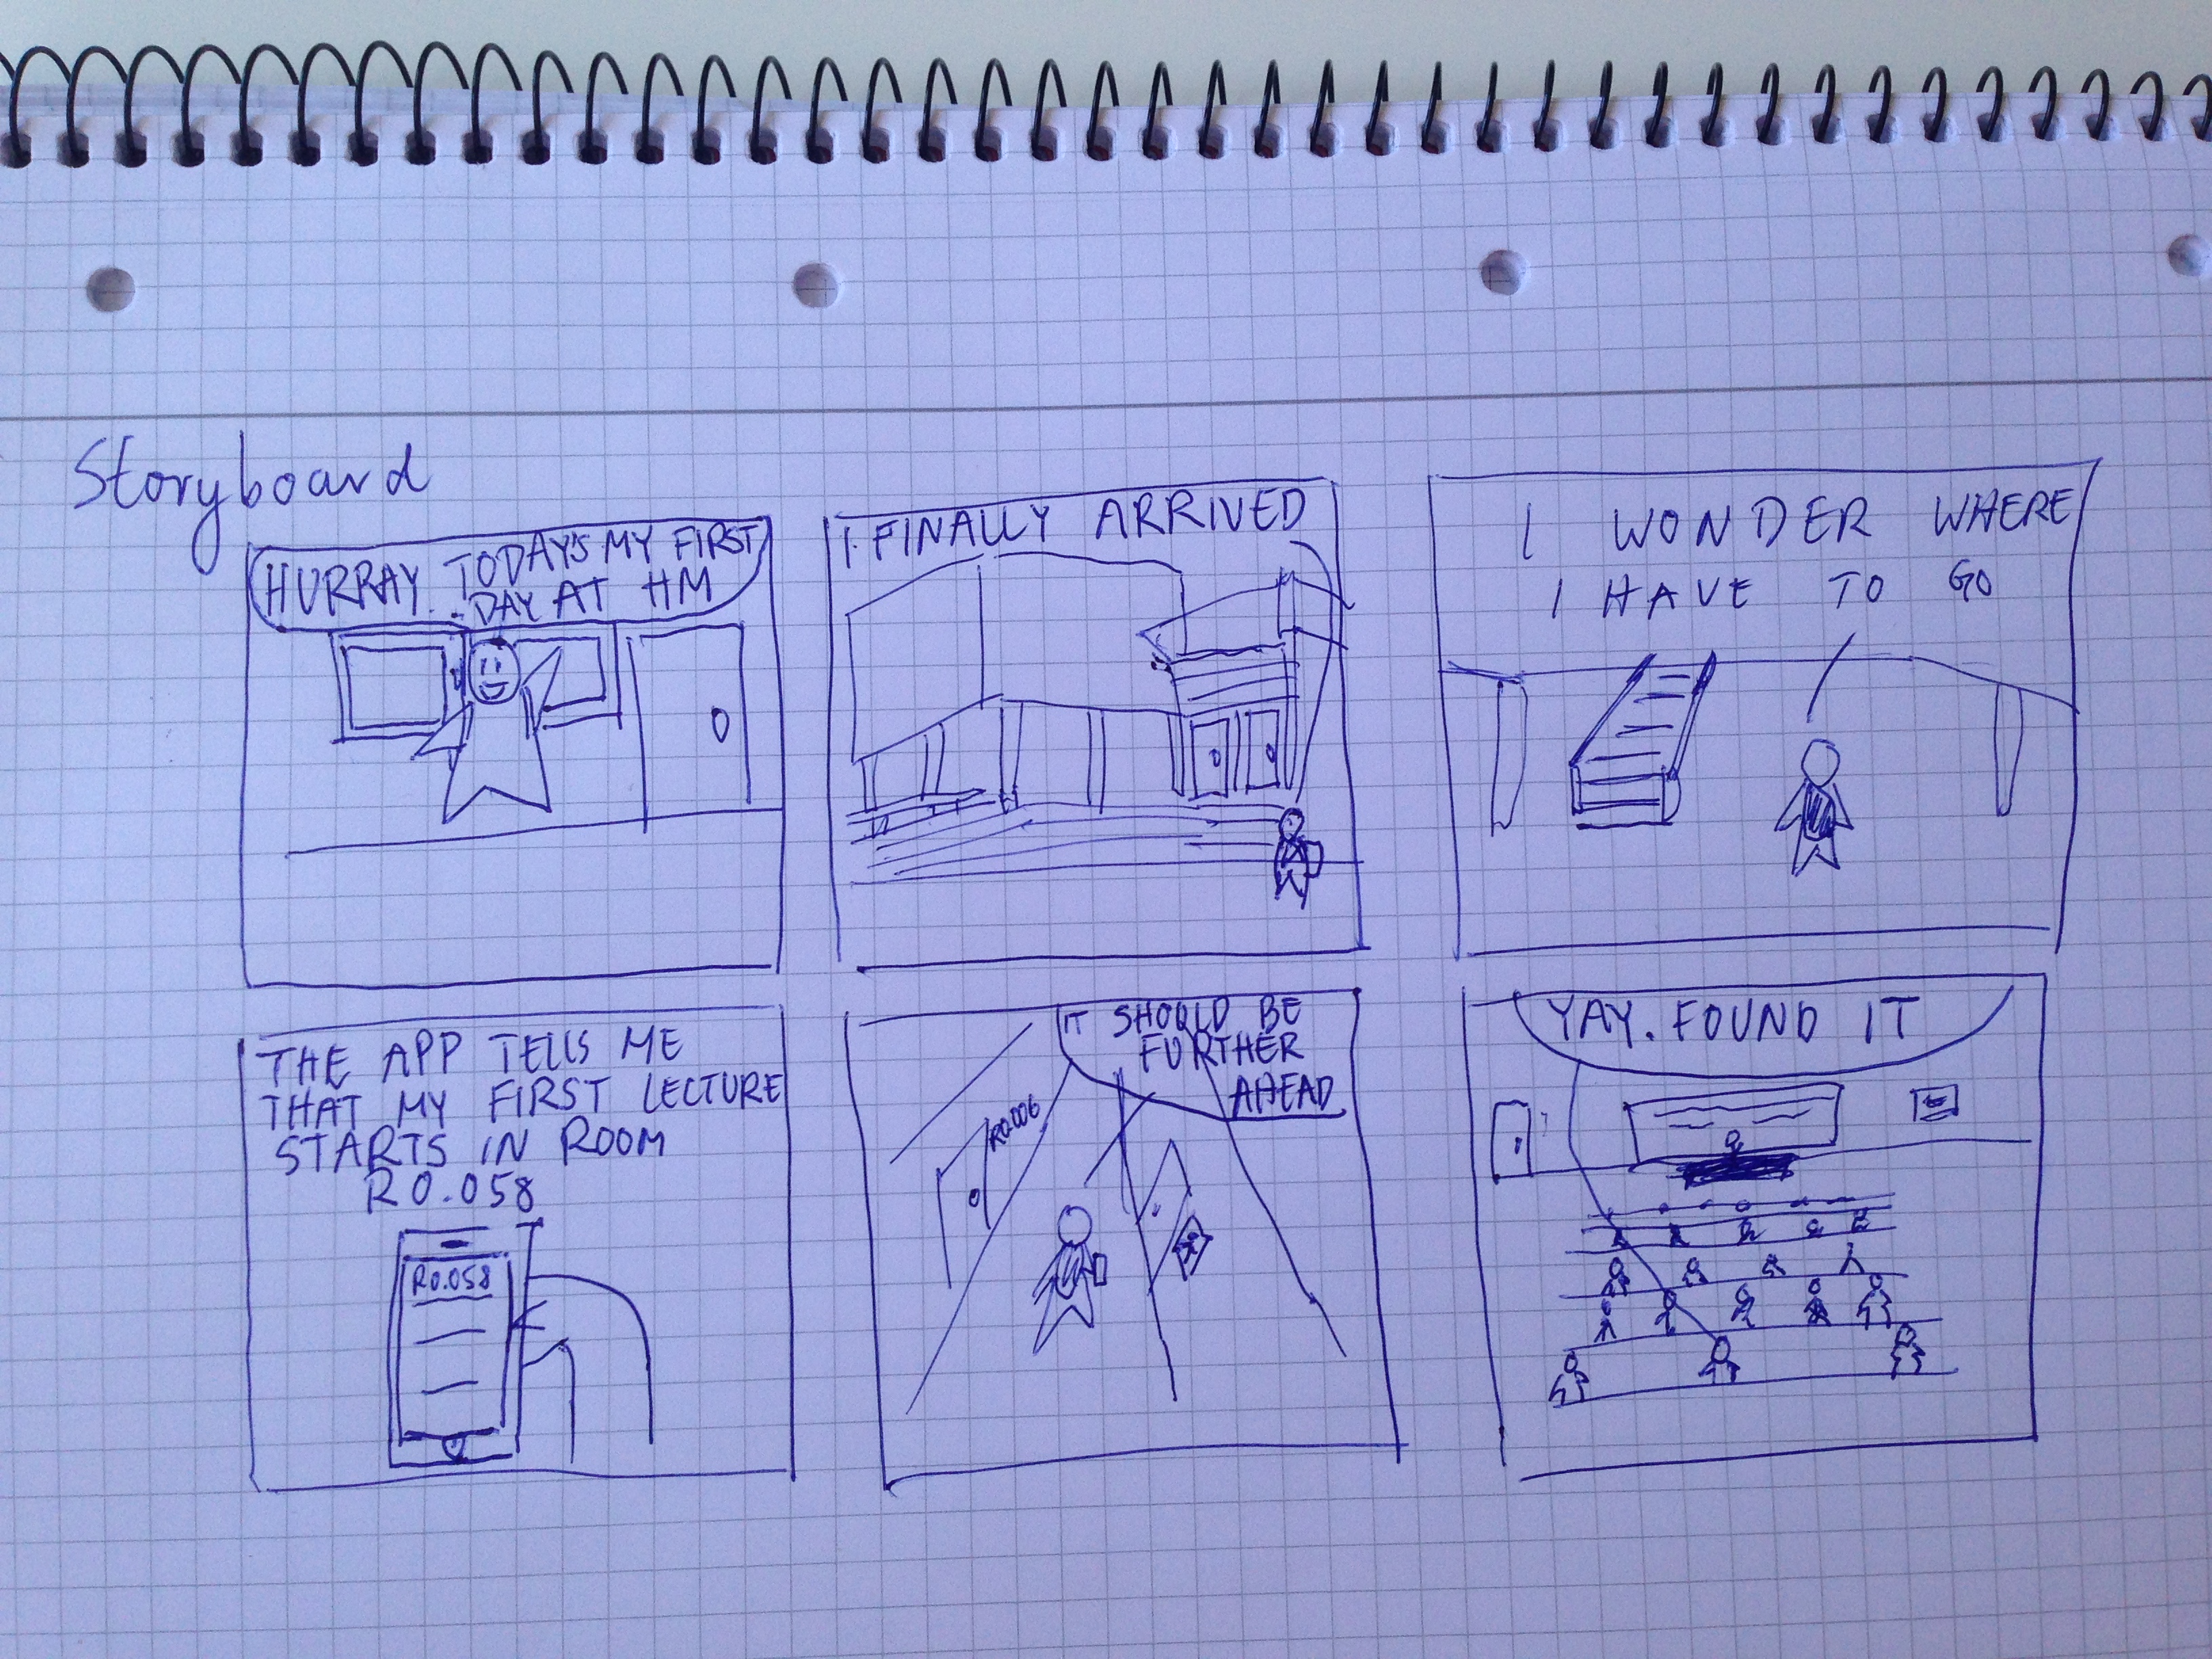 Storyboard
HURRAY.. TODAYS MY FIRST
DAY AT HM
I FINALLY ARRIVED
I WONDER WHERE
I HAVE TO GO
THE APP TELLS ME
THAT MY FIRST LECTURE
STARTS IN ROOM
R0.058
R0.058
IT SHOULD BE
FURTHER
AHEAD
YAY. FOUND IT